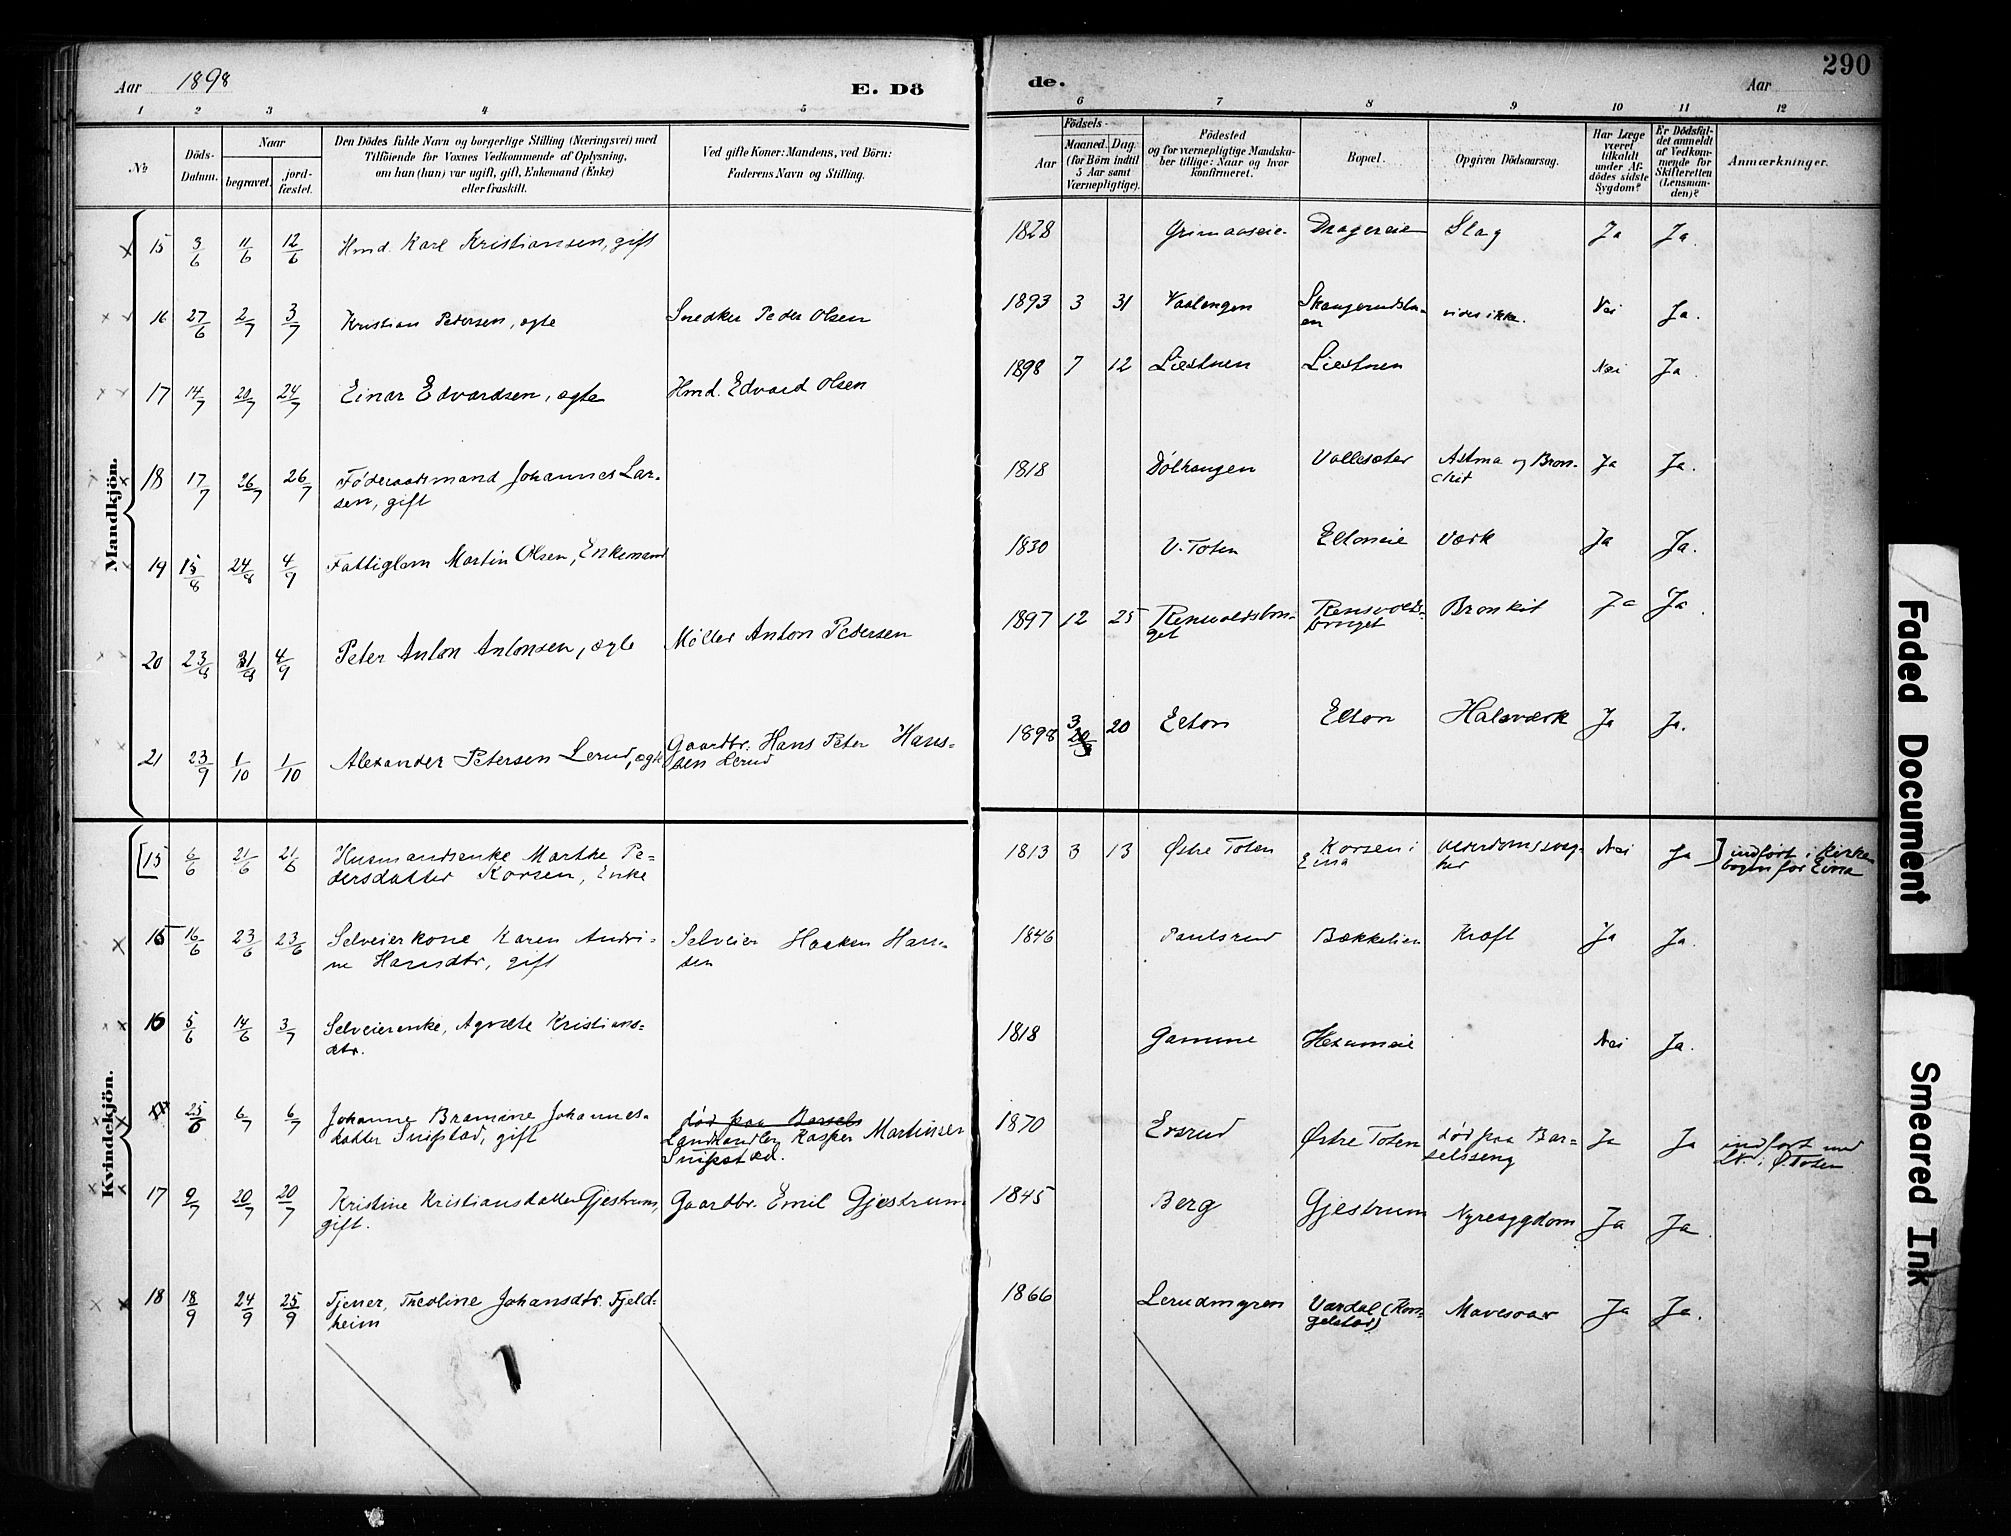 Aar 1898
E. Dö
de.
Aar
290
1 2 3 4 5 6 7 8 9 10 11 12
No
Döds-
Datum.
Naar
begravet.
jord-
fæstet.
Den Dödes fulde Navn og borgerlige Stilling (Næringsvei) med
Tilföiende for Voxnes Vedkommende af Oplysning,
om han (hun) var ugift, gift, Enkemand (Enke)
eller fraskilt.
Ved gifte Koner: Mandens, ved Börn:
Faderens Navn og Stilling.
Födsels-
Aar
Maaned. Dag
(for Börn indtil
5 Aar samt
Værnepligtige).
Födested
og for værnepligtige Mandska-
ber tillige: Naar og hvor
konfirmeret.
Bopæl.
Opgiven Dödsaarsag.
Har Læge
været
tilkaldt
under Af-
dödes sidste
Sygdom?
Er Dödsfal-
det anmeldt
af Vedkom-
mende for
Skifteretten
(Lensman-
den)?
Anmærkninger.
Mandkjön.
15 3/6 11/6 12/6 Hmd. Karl Kristiansen, gift 1828 Grimaaseie Dragereie Slag Ja Ja.
16 27/6 2/7 3/7 Kristian Pedersen, ægte Snedker Peder Olsen 1893 3 31 Vaalengen vides ikke. Nei Ja.
17 14/7 20/7 24/7 Einar Edvardsen, ægte Hmd. Edvard Olsen 1898 7 12 Liestuen Liestuen Nei Ja
18 17/7 26/7 26/7 Föderaadsmand Johannes Lar-
sen, gift 1818 Dölhaugen Vollesæter Astma og Bron-
chit Ja Ja.
19 15/8 24/8 4/9 Fattiglem Martin Olsen, Enkemand 1830 V. Toten Eltoneie Værk Ja Ja.
20 23/8 31/8 4/9 Peter Anton Antonsen, ægte Møller Anton Pedersen 1897 12 25 Rensvoldsbru-
get Rensvolds-
bruget Bronkit Ja Ja
21 23/9 1/10 1/10 Alexander Petersen Lerud, ægte Gaardbr. Hans Peter Hans-
sen Lerud 1898 3 20 Elton Elton Halsværk Ja Ja.
Kvindekjön.
[15 6/6 21/6 21/6 Husmandsenke Marthe Pe-
dersdatter Korsen, Enke 1813 3 13 Østre Toten Korsen i
Eina Alderdomssvag-
hed Nei Ja ] indført i Kirke
bogen for Eina
15 16/6 23/6 23/6 Selveierkone Karen Andri-
ne Hansdtr, gift Selveier Haaken Han-
sen 1846 Paulsrud Bækkelien Kræft Ja Ja.
16 5/6 14/6 3/7 Selveierenke, Agnethe Kristians-
dtr. 1818 Gamme Hexumeie Nei Ja.
25/6 6/7 6/7 Johanne Bramine Johannes-
datter Snipstad, gift død paa Barsels
Landhandler Kasper Martinsen
Snipstad. 1870 Ersrud Østre Toten død paa Bar-
selsseng Ja Ja indført med
Lt. i Ø. Toten
17 9/7 20/7 20/7 Kristine Kristiansdatter Gjestrum,
gift. Gaardbr. Emil Gjestrum 1845 Berg Gjestrum Nyresygdom Ja Ja
18 18/9 24/9 25/9 Tjener, Theoline Johansdtr. Fjeld-
heim 1866 Lerudmyren Vardal Mavesaar Ja Ja.
Faded Document
Smeared Ink